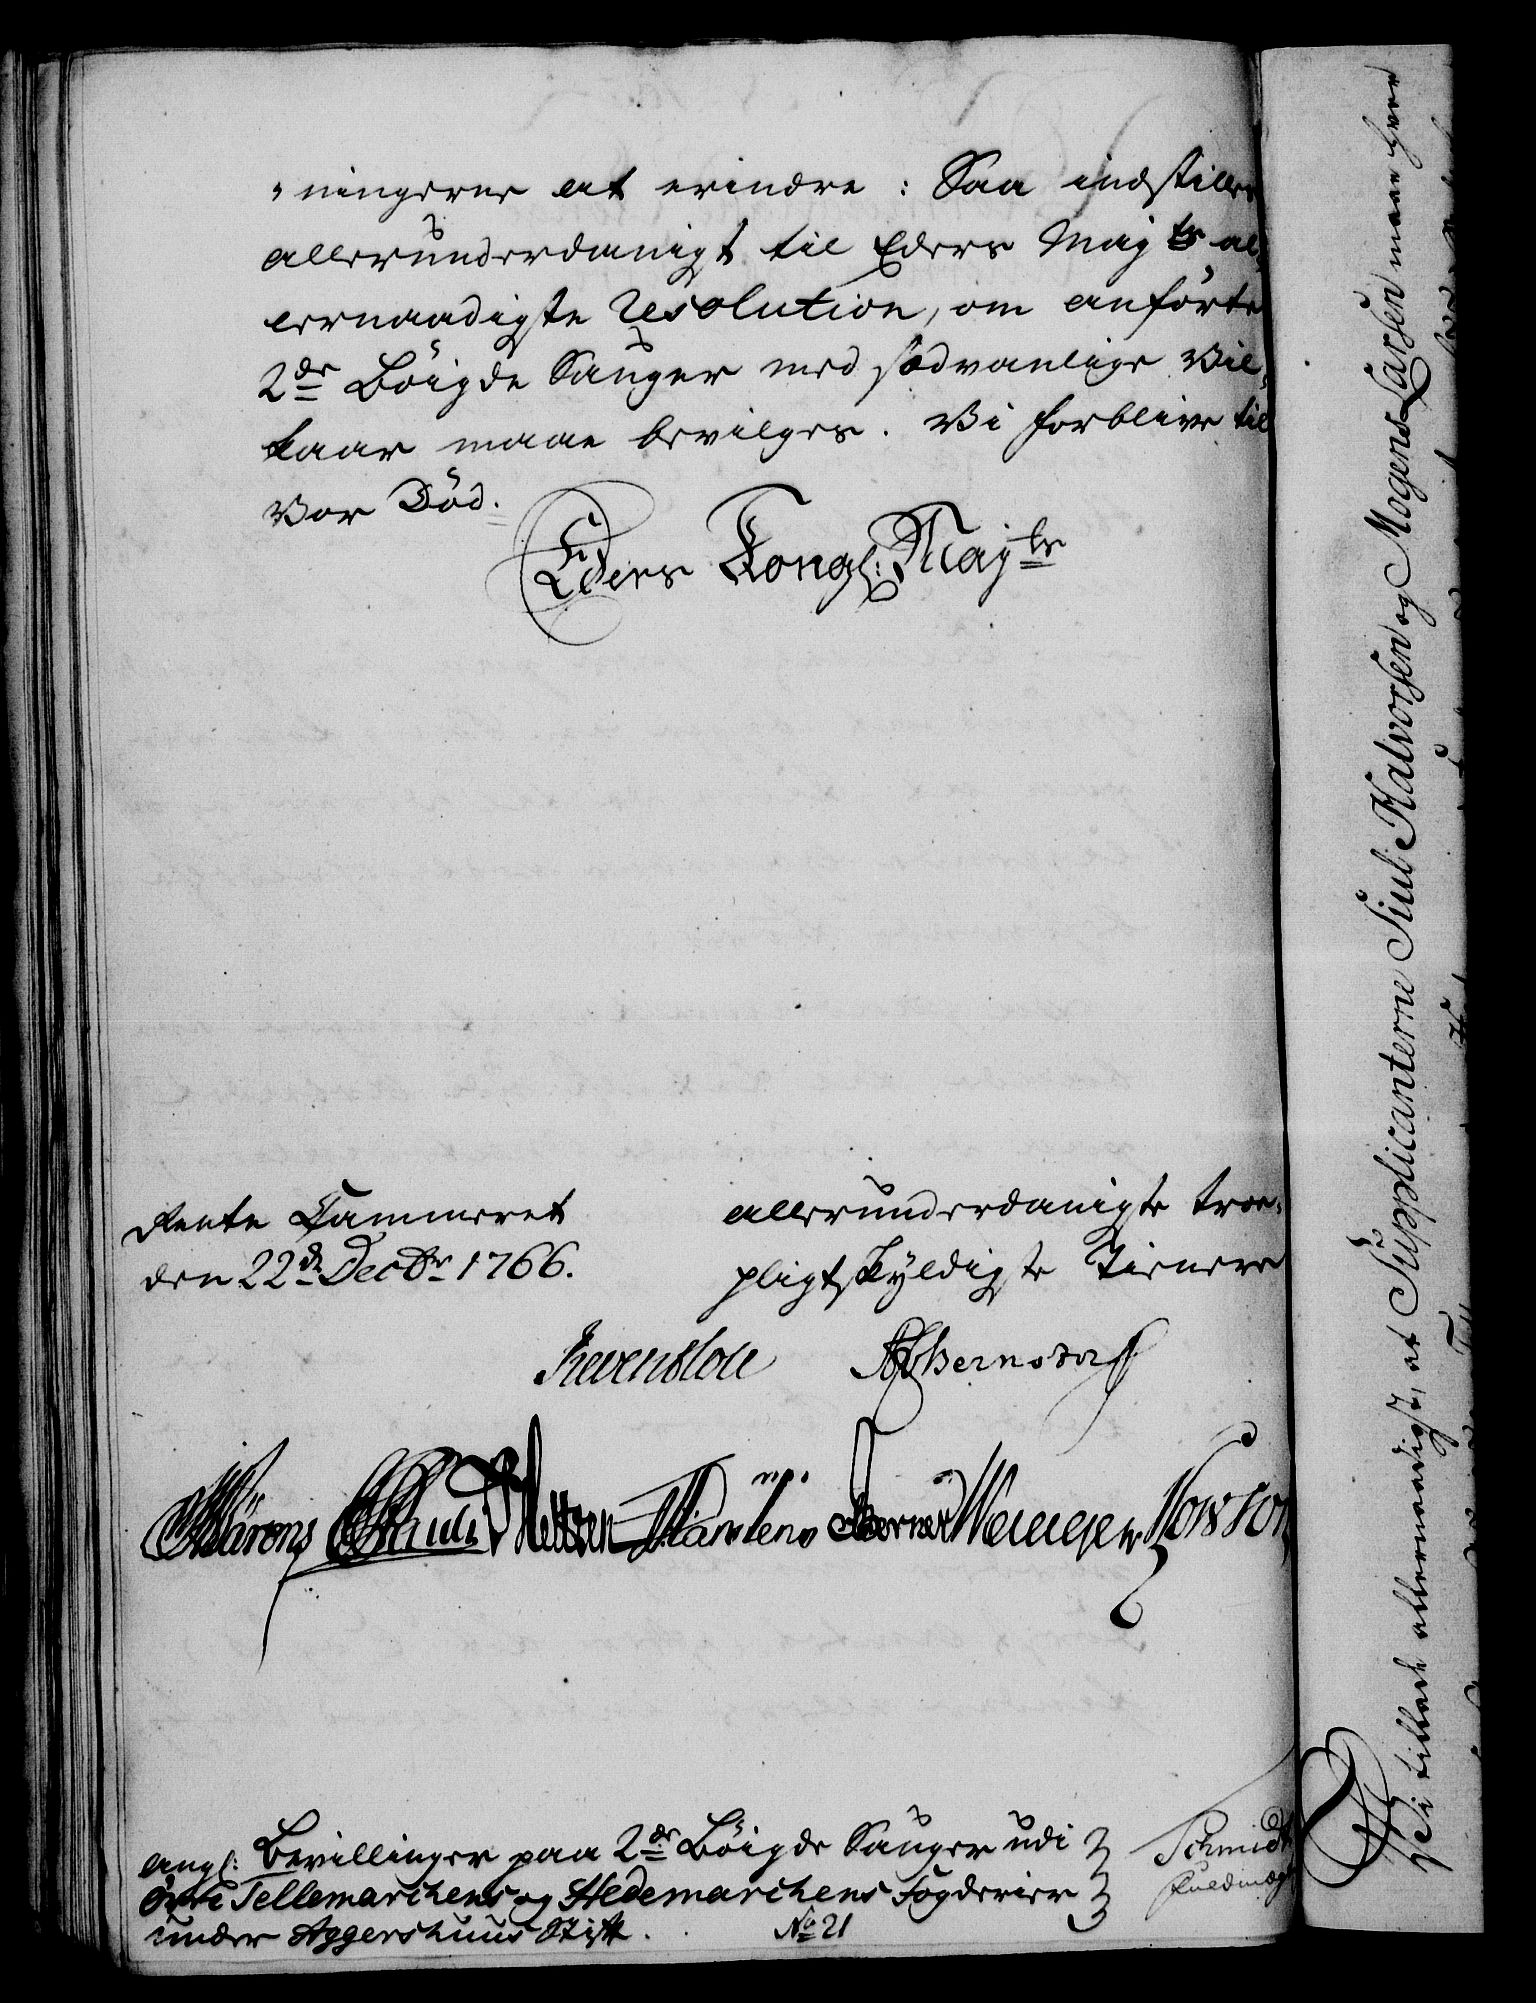 ningerne at erindre: Saa indstilles
allerunderdanigst til Eders Mayts al-
lernaadigste Resolution, om anførte
2de Böigde Sauger med sædvanlige Vil-
kaar maae bevilges. Vi forblive til
Vor Død.
Eders Kongl: Mayts
Rente Cammeret
den 22de Decbr 1766.
allerunderdanigste troe-
pligtskyldigste Tienere
Reventlou AGBernstorff
Schmidt
Fuldmægt
angl: Bevillinger paa 2de Böigde Sauger udi
Øvre Tellemarchens og Hedemarchens Fogderier
under Aggershuus Stift.
No 21
Vi tillade allernaadigst, at Supplicanterne Siul Halvorsen og Mogens Larsen maae hver